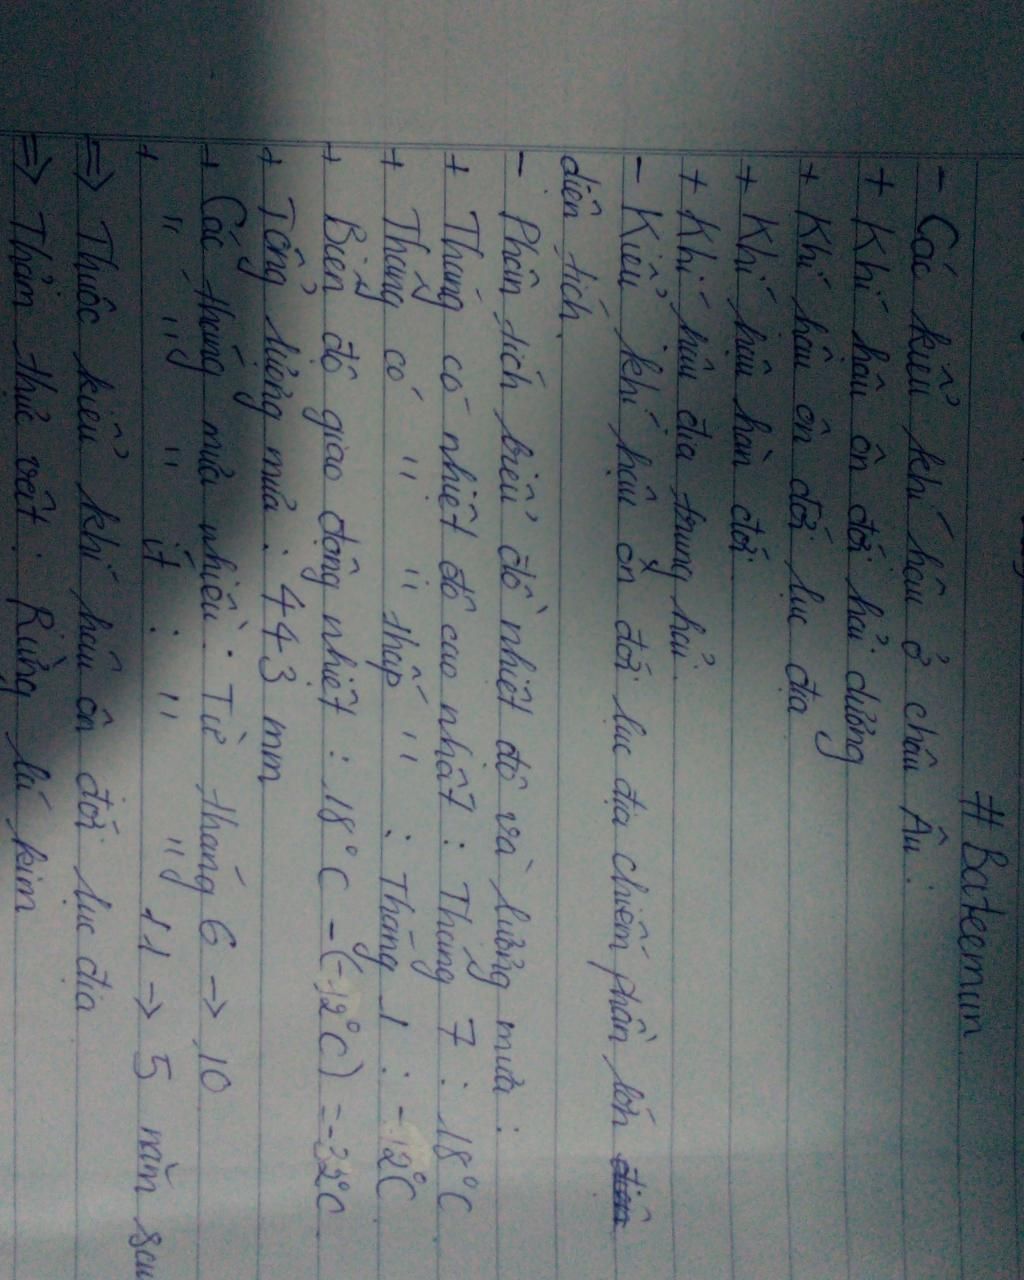 # Bateemun
- Các kiểu khí hậu ở châu Âu :
+ Khí hậu ôn đới hải dương
+ Khí hậu ôn đới lục địa
+ Khí hậu hàn đới
+ Khí hậu địa trung hải
- Kiểu khí hậu ôn đới lục địa chiếm phần lớn
diện tích
- Phân tích biểu đồ nhiệt độ và lượng mưa :
+ Tháng có nhiệt độ cao nhất : Tháng 7 : 18°C
+ Tháng có " " thấp " : Tháng 1 : -12°C
+ Biên độ giao động nhiệt : 18°C - (-12°C) = -32°C
+ Tổng lượng mưa : 443 mm
+ Các tháng mưa nhiều : Từ tháng 6 → 10
+ " " " ít : " " 11 → 5 năm sau
⇒ Thuộc kiểu khí hậu ôn đới lục địa
⇒ Thảm thực vật : Rừng lá kim